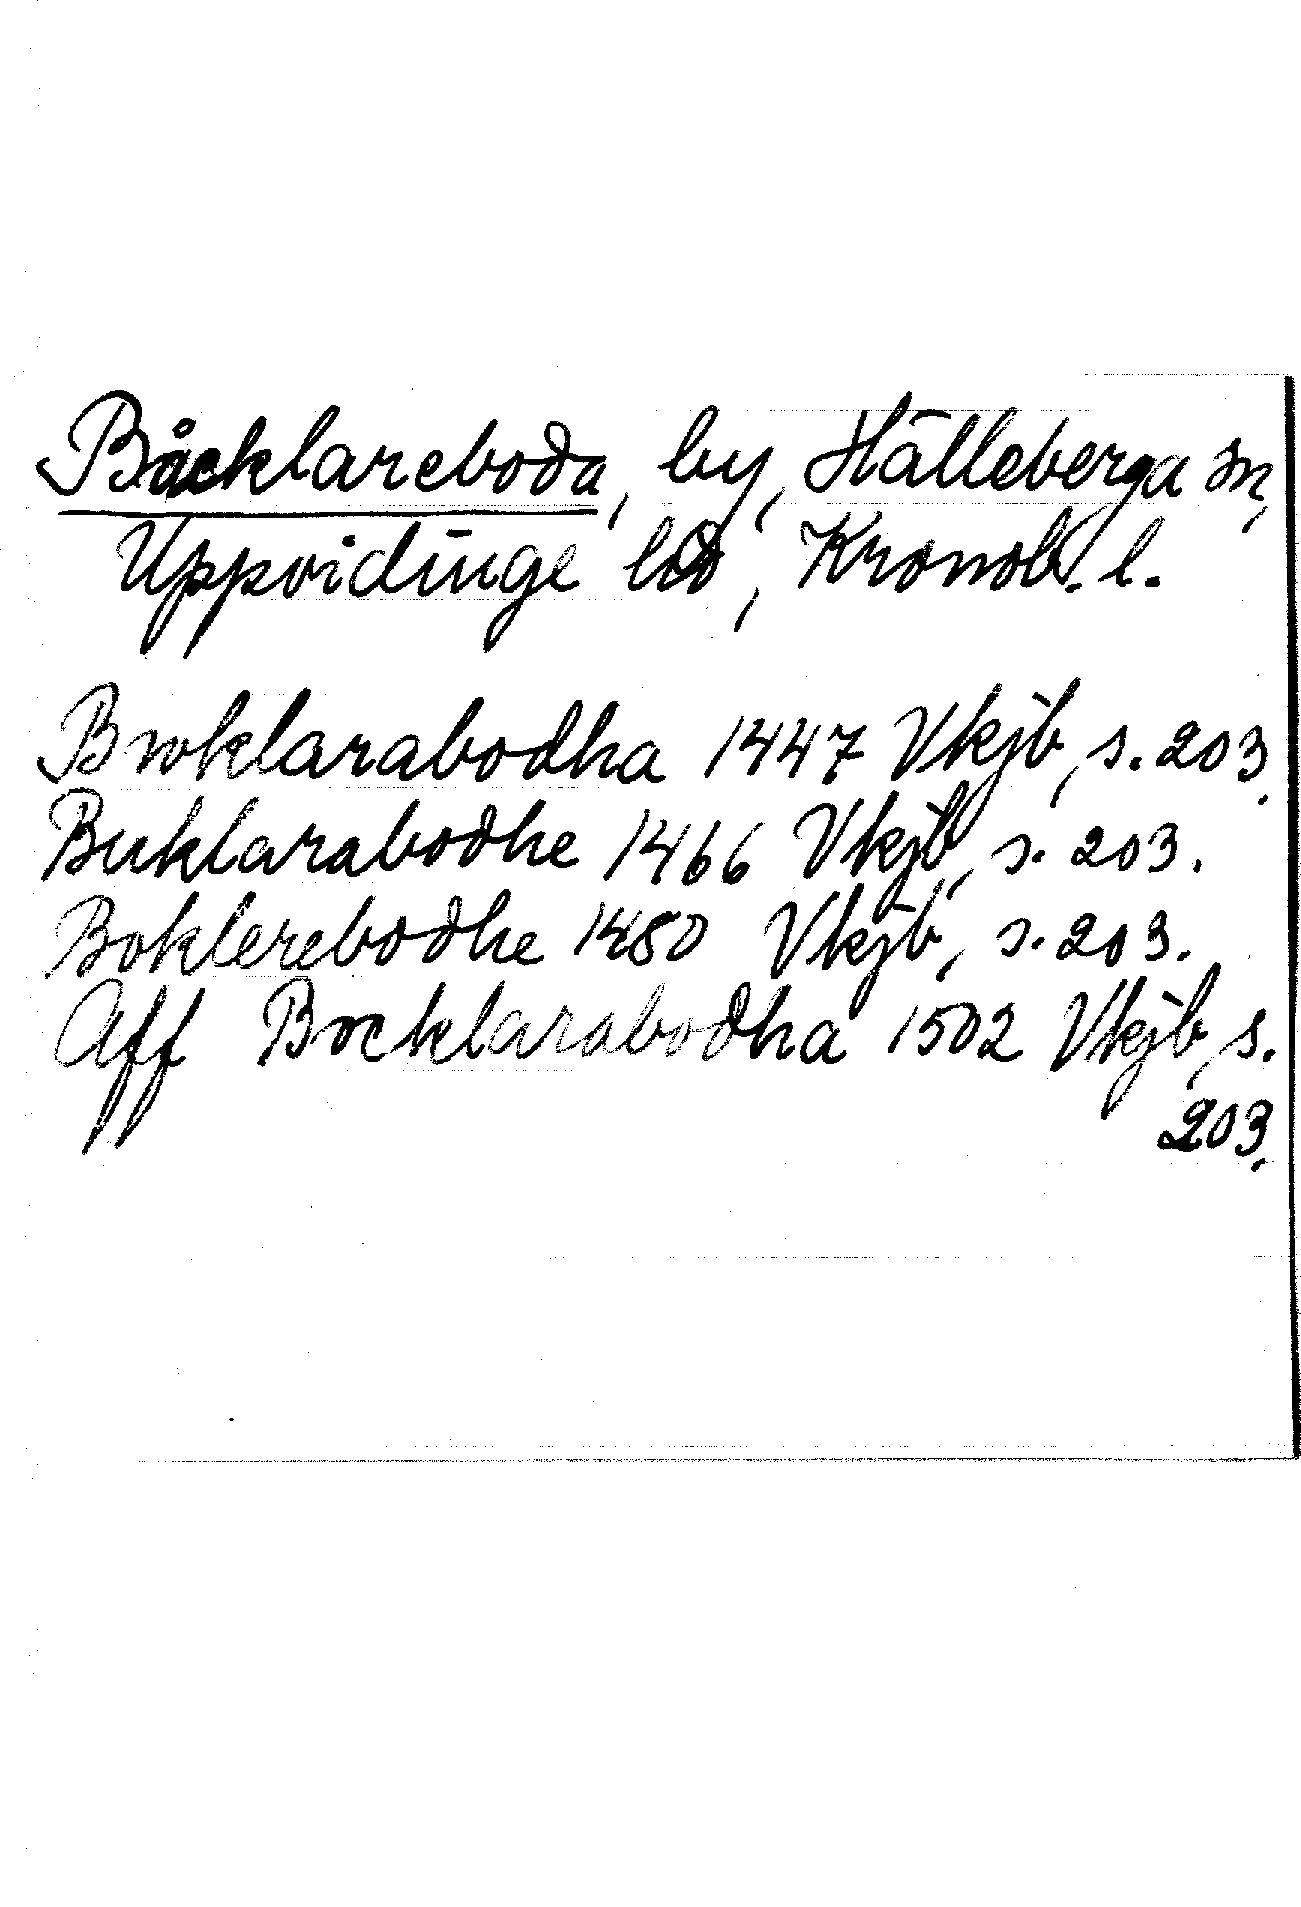 Båcklareboda, by, Hälleberga sn,
Uppvidinge hd, Kronob. l.
Bwklarabodha 1447 Vkjb, s. 203.
Buklarabodhe 1466 Vkjb, s. 203.
Boklerebodhe 1480 Vkjb, s. 203.
Aff Bocklarabodha 1502 Vkjb, s.
203.